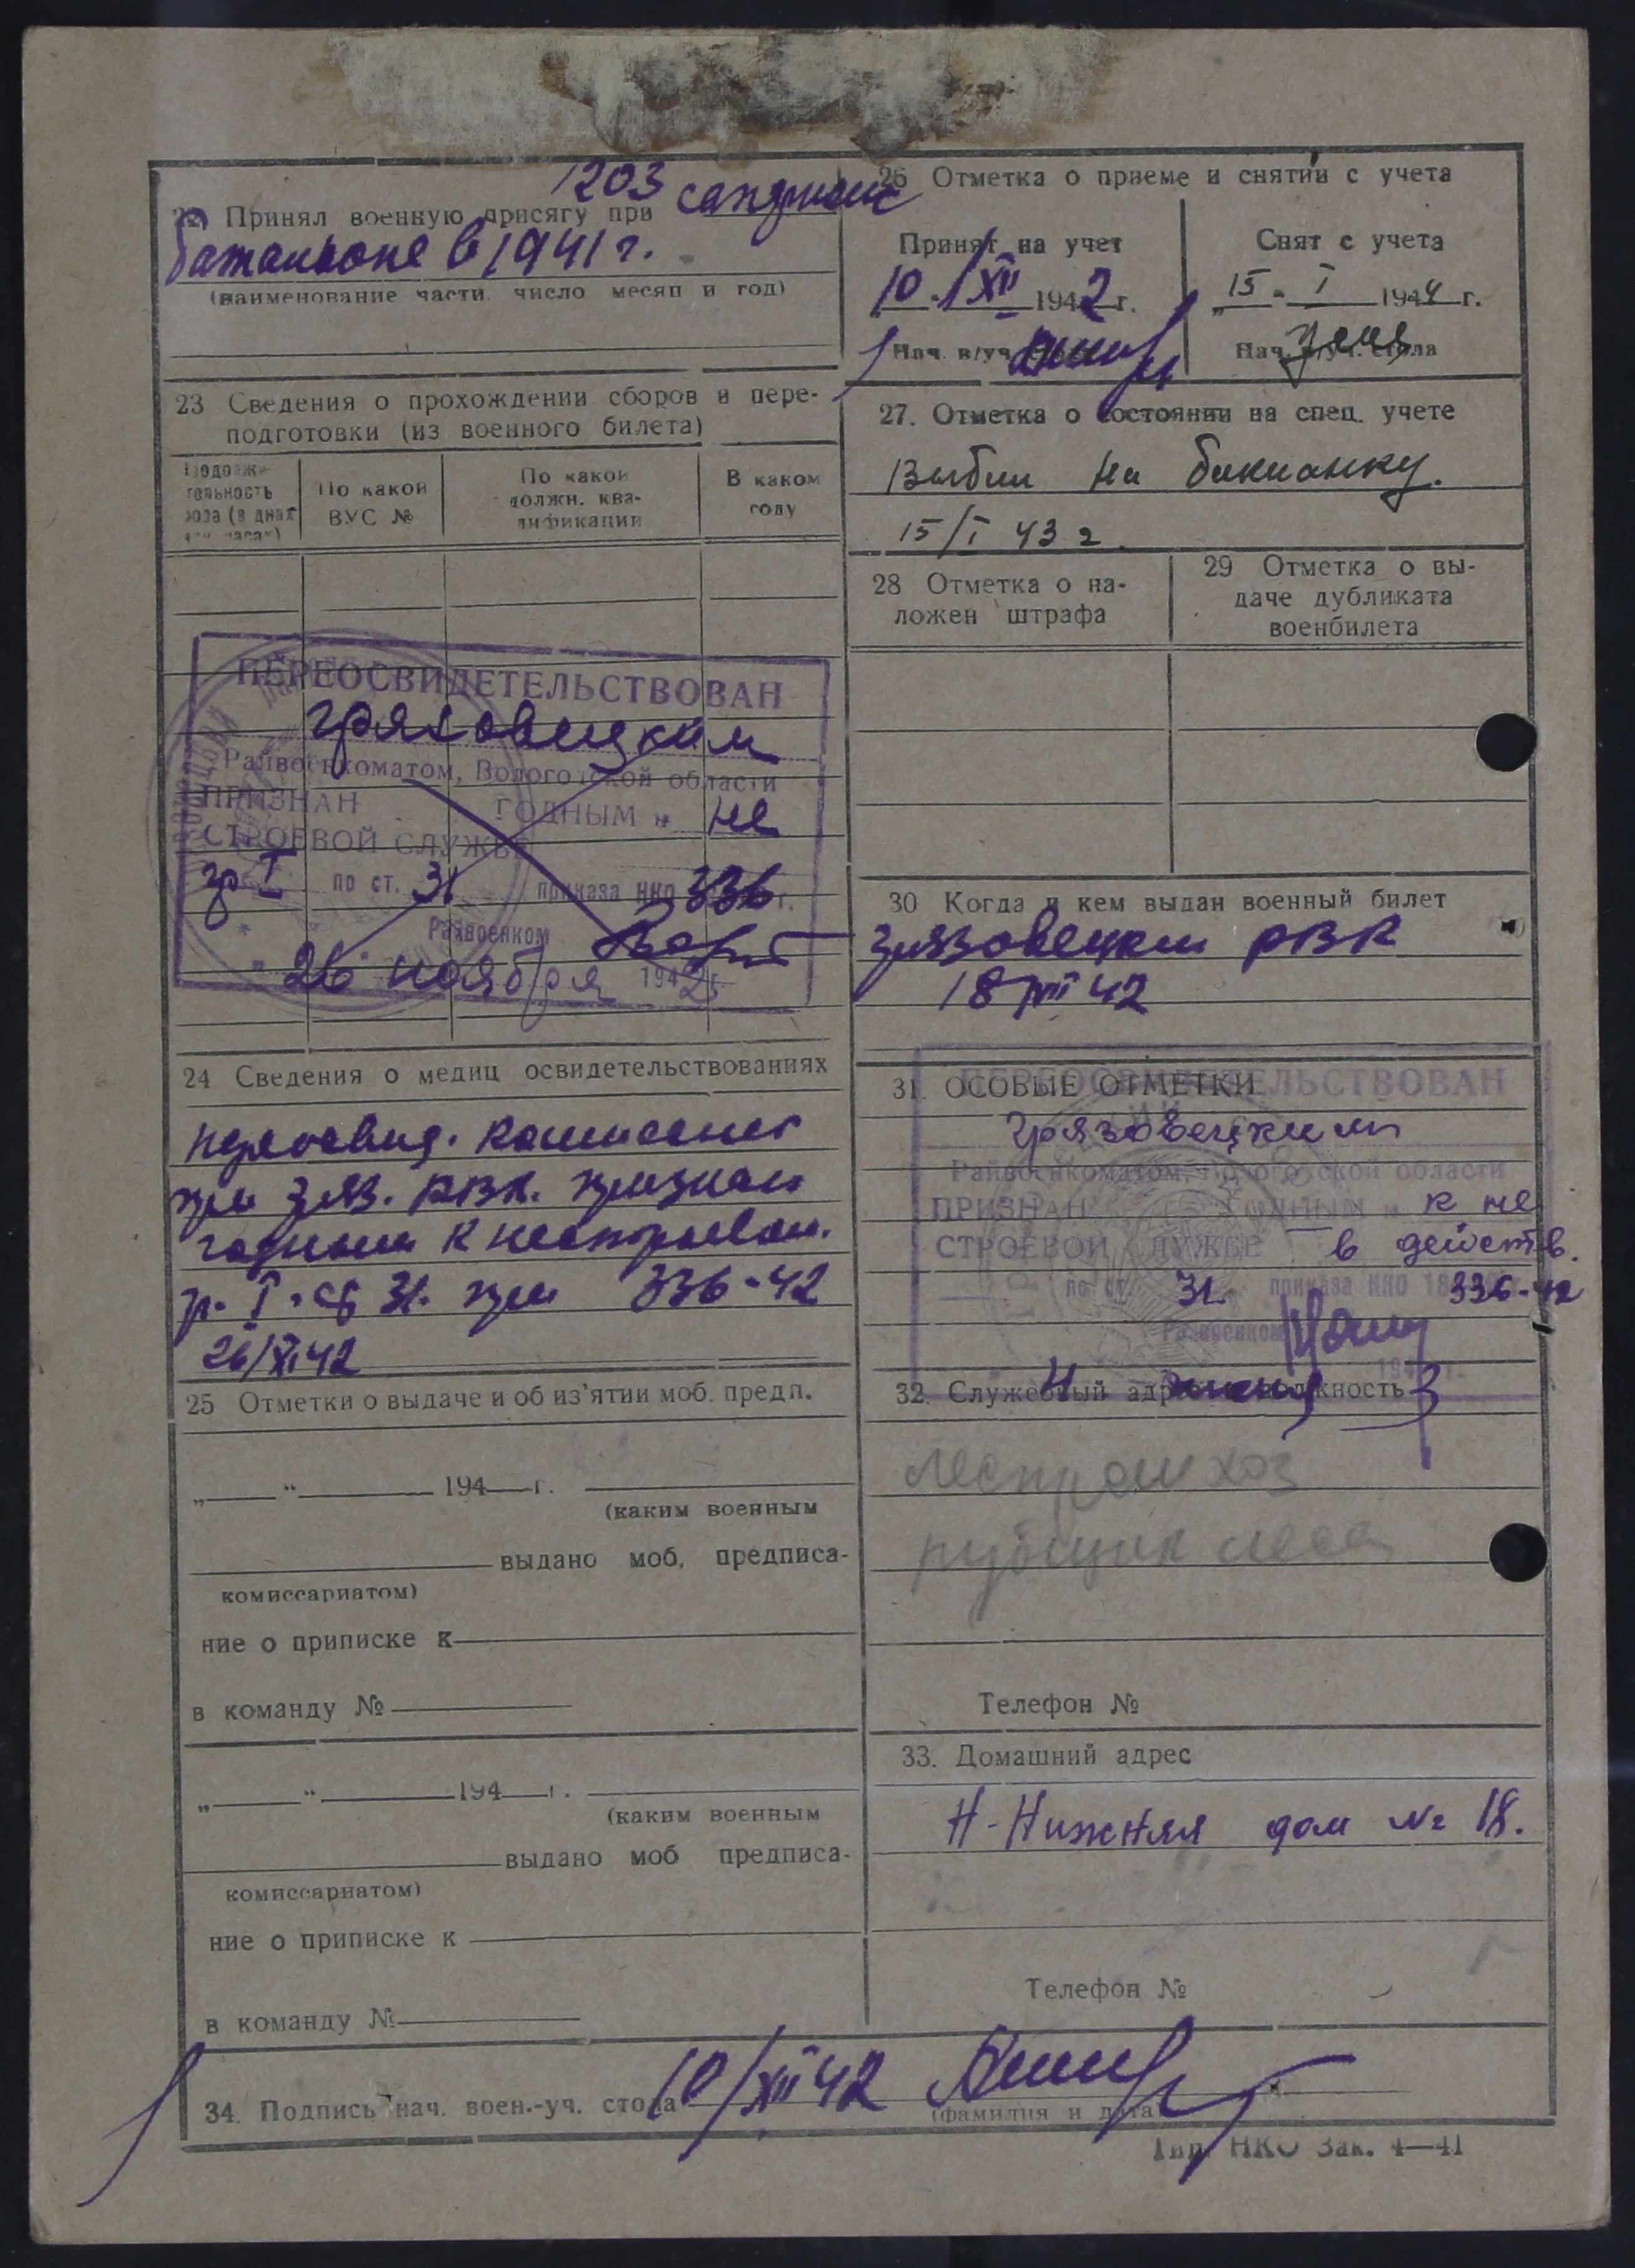 22 Принял военную присягу при 1203 саперном
батальоне в 1941 г.
(наименование части число месяц и год)
23 Сведения о прохождении сборов и пере-
подготовки (из военного билета)
Продолжи-
тельность
(в днях
По какой
ВУС №
По какой
должн. ква-
лификации
В каком
году
ПЕРЕОСВИДЕТЕЛЬСТВОВАН
Грязовецким
Райвоенкоматом, Вологодской области
ПРИЗНАН ГОДНЫМ к не
СТРОЕВОЙ СЛУЖБЕ
гр I по ст. 31 приказа НКО 336 г.
Райвоенком
26 ноября 1942 г.
24 Сведения о медиц освидетельствованиях
комиссией
при РВК. признан
годным к
гр. I ст 31. 336-42
26/XI 42
25 Отметки о выдаче и об из'ятии моб. предп.
„ “ 194 г.
(каким военным
выдано моб, предписа-
комиссариатом)
ние о приписке к
в команду №
„ “ 194 г.
(каким военным
выдано моб предписа-
комиссариатом)
ние о приписке к
в команду №
26 Отметка о приеме и снятии с учета
Принят на учет
10 XII 1942 г.
Нач. в/уч.
Снят с учета
„15 - I 1944 г.
Нач. в/уч. стола
27. Отметка о состоянии на спец. учете
Выбыл на
15/I 43 г.
28 Отметка о на-
ложен штрафа
29 Отметка о вы-
даче дубликата
военбилета
30 Когда и кем выдан военный билет
Грязовецким РВК
18 42
31. ОСОБЫЕ ОТМЕТКИ
ПЕРЕОСВИДЕТЕЛЬСТВОВАН
Грязовецким
Райвоенкоматом, Вологодской области
ПРИЗНАН ГОДНЫМ к не
СТРОЕВОЙ СЛУЖБЕ в действ.
по ст 31 приказа НКО 336-42
Райвоенком
32. Служебный адрес и должность
Леспромхоз
рубщик леса
Телефон №
33. Домашний адрес
Н-Нижняя дом № 18.
Телефон №
34. Подпись нач. воен.-уч. стола 10/XII 42
(фамилия и дата)
Тип. НКО Зак. 4—41